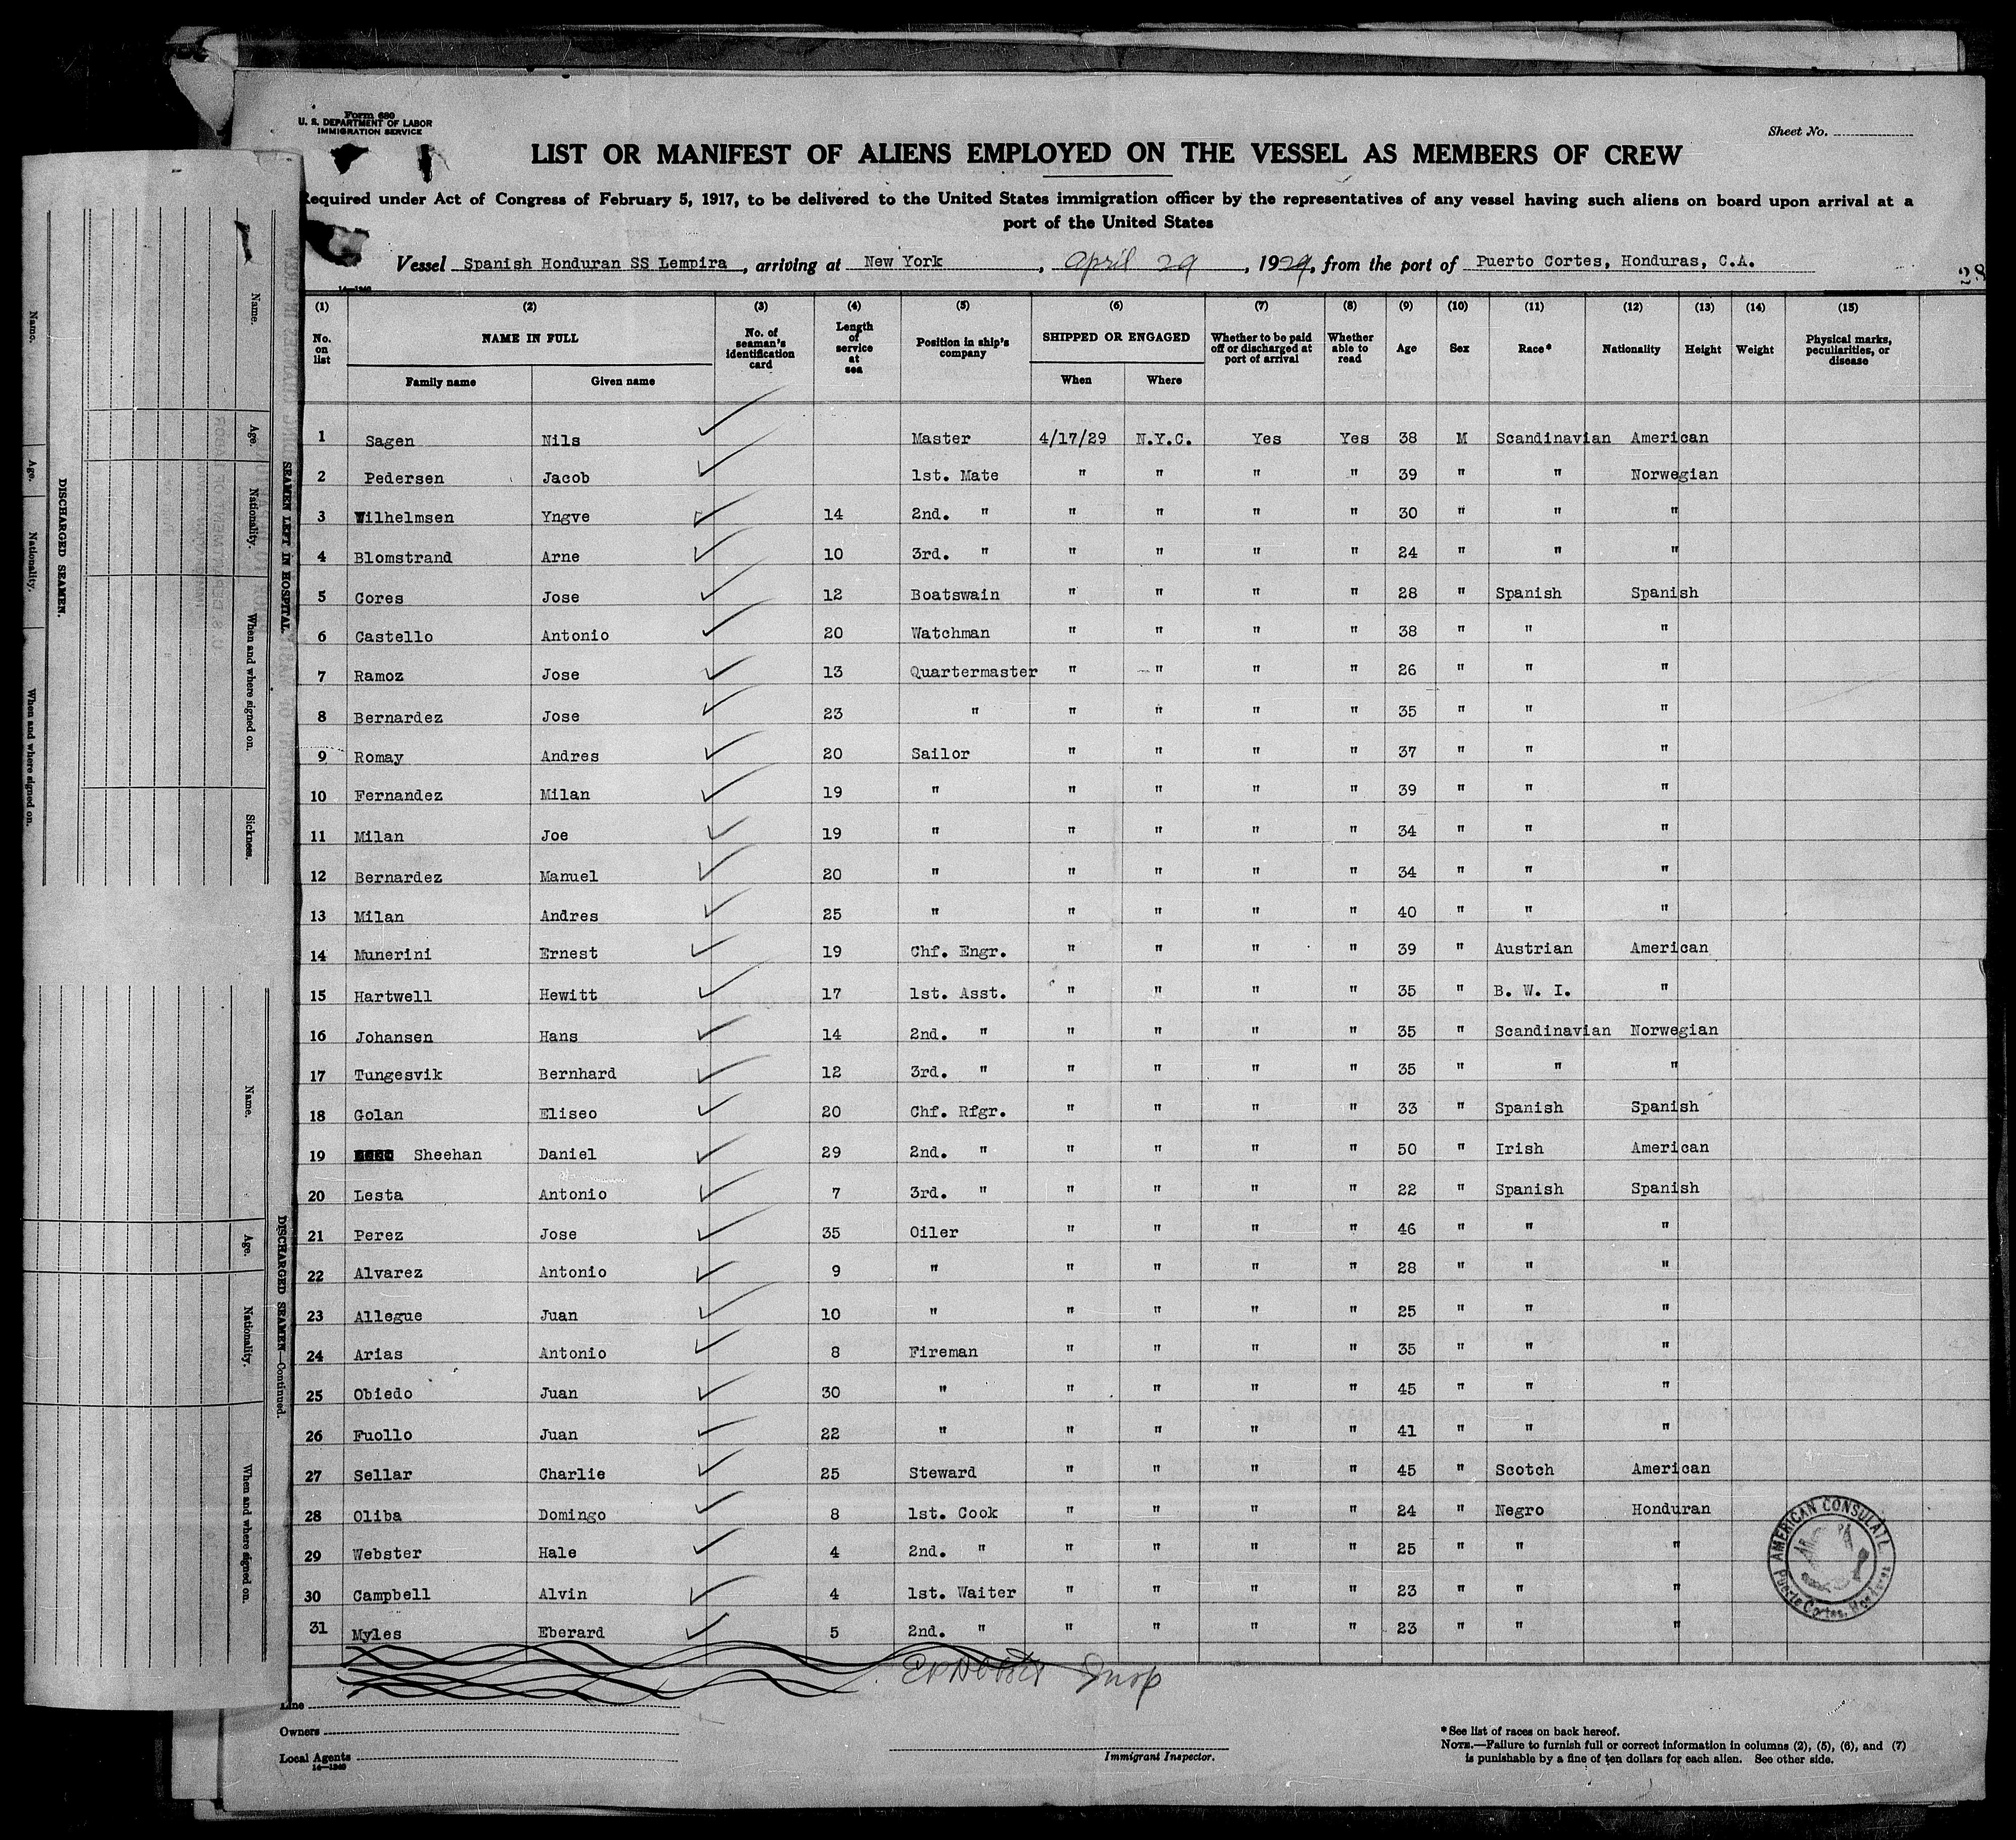 Form 680
U. S. DEPARTMENT OF LABOR
IMMIGRATION SERVICE
Sheet No.
LIST OR MANIFEST OF ALIENS EMPLOYED ON THE VESSEL AS MEMBERS OF CREW
Required under Act of Congress of February 5, 1917, to be delivered to the United States immigration officer by the representatives of any vessel having such aliens on board upon arrival at a
port of the United States
Vessel Spanish Honduran SS Lempira, arriving at New York, April 29, 1929, from the port of Puerto Cortes, Honduras, C.A.
28
14—1240
(1) (2) (3) (4) (5) (6) (7) (8) (9) (10) (11) (12) (13) (14) (15)
No. on list NAME IN FULL Family name Given name No. of seaman's identification card Length of service at sea Position in ship's company SHIPPED OR ENGAGED When Where Whether to be paid off or discharged at port of arrival Whether able to read Age Sex Race* Nationality Height Weight Physical marks, peculiarities, or disease
1 Sagen Nils Master 4/17/29 N.Y.C. Yes Yes 38 M Scandinavian American
2 Pedersen Jacob 1st. Mate " " " " 39 " " Norwegian
3 Wilhelmsen Yngve 14 2nd. " " " " " 30 " " "
4 Blomstrand Arne 10 3rd. " " " " " 24 " " "
5 Cores Jose 12 Boatswain " " " " 28 " Spanish Spanish
6 Castello Antonio 20 Watchman " " " " 38 " " "
7 Ramoz Jose 13 Quartermaster " " " " 26 " " "
8 Bernardez Jose 23 " " " " " 35 " " "
9 Romay Andres 20 Sailor " " " " 37 " " "
10 Fernandez Milan 19 " " " " " 39 " " "
11 Milan Joe 19 " " " " " 34 " " "
12 Bernardez Manuel 20 " " " " " 34 " " "
13 Milan Andres 25 " " " " " 40 " " "
14 Munerini Ernest 19 Chf. Engr. " " " " 39 " Austrian American
15 Hartwell Hewitt 17 1st. Asst. " " " " 35 " B. W. I. "
16 Johansen Hans 14 2nd. " " " " " 35 " Scandinavian Norwegian
17 Tungesvik Bernhard 12 3rd. " " " " " 35 " " "
18 Golan Eliseo 20 Chf. Rfgr. " " " " 33 " Spanish Spanish
19 Sheehan Daniel 29 2nd. " " " " " 50 " Irish American
20 Lesta Antonio 7 3rd. " " " " " 22 " Spanish Spanish
21 Perez Jose 35 Oiler " " " " 46 " " "
22 Alvarez Antonio 9 " " " " " 28 " " "
23 Allegue Juan 10 " " " " " 25 " " "
24 Arias Antonio 8 Fireman " " " " 35 " " "
25 Obiedo Juan 30 " " " " " 45 " " "
26 Fuollo Juan 22 " " " " " 41 " " "
27 Sellar Charlie 25 Steward " " " " 45 " Scotch American
28 Oliba Domingo 8 1st. Cook " " " " 24 " Negro Honduran
29 Webster Hale 4 2nd. " " " " " 25 " " "
30 Campbell Alvin 4 1st. Waiter " " " " 23 " " "
31 Myles Eberard 5 2nd. " " " " " 23 " " "
AMERICAN CONSULATE
Puerto Cortes, Honduras
Insp
Line
Owners
Local Agents
14—1240
Immigrant Inspector.
*See list of races on back hereof.
NOTE.—Failure to furnish full or correct information in columns (2), (5), (6), and (7)
is punishable by a fine of ten dollars for each alien. See other side.
SEAMEN LEFT IN HOSPITAL.
Name. Age. Nationality. When and where signed on. Sickness.
DISCHARGED SEAMEN.
Name. Age. Nationality. When and where signed on.
DISCHARGED SEAMEN—Continued.
Name. Age. Nationality. When and where signed on.